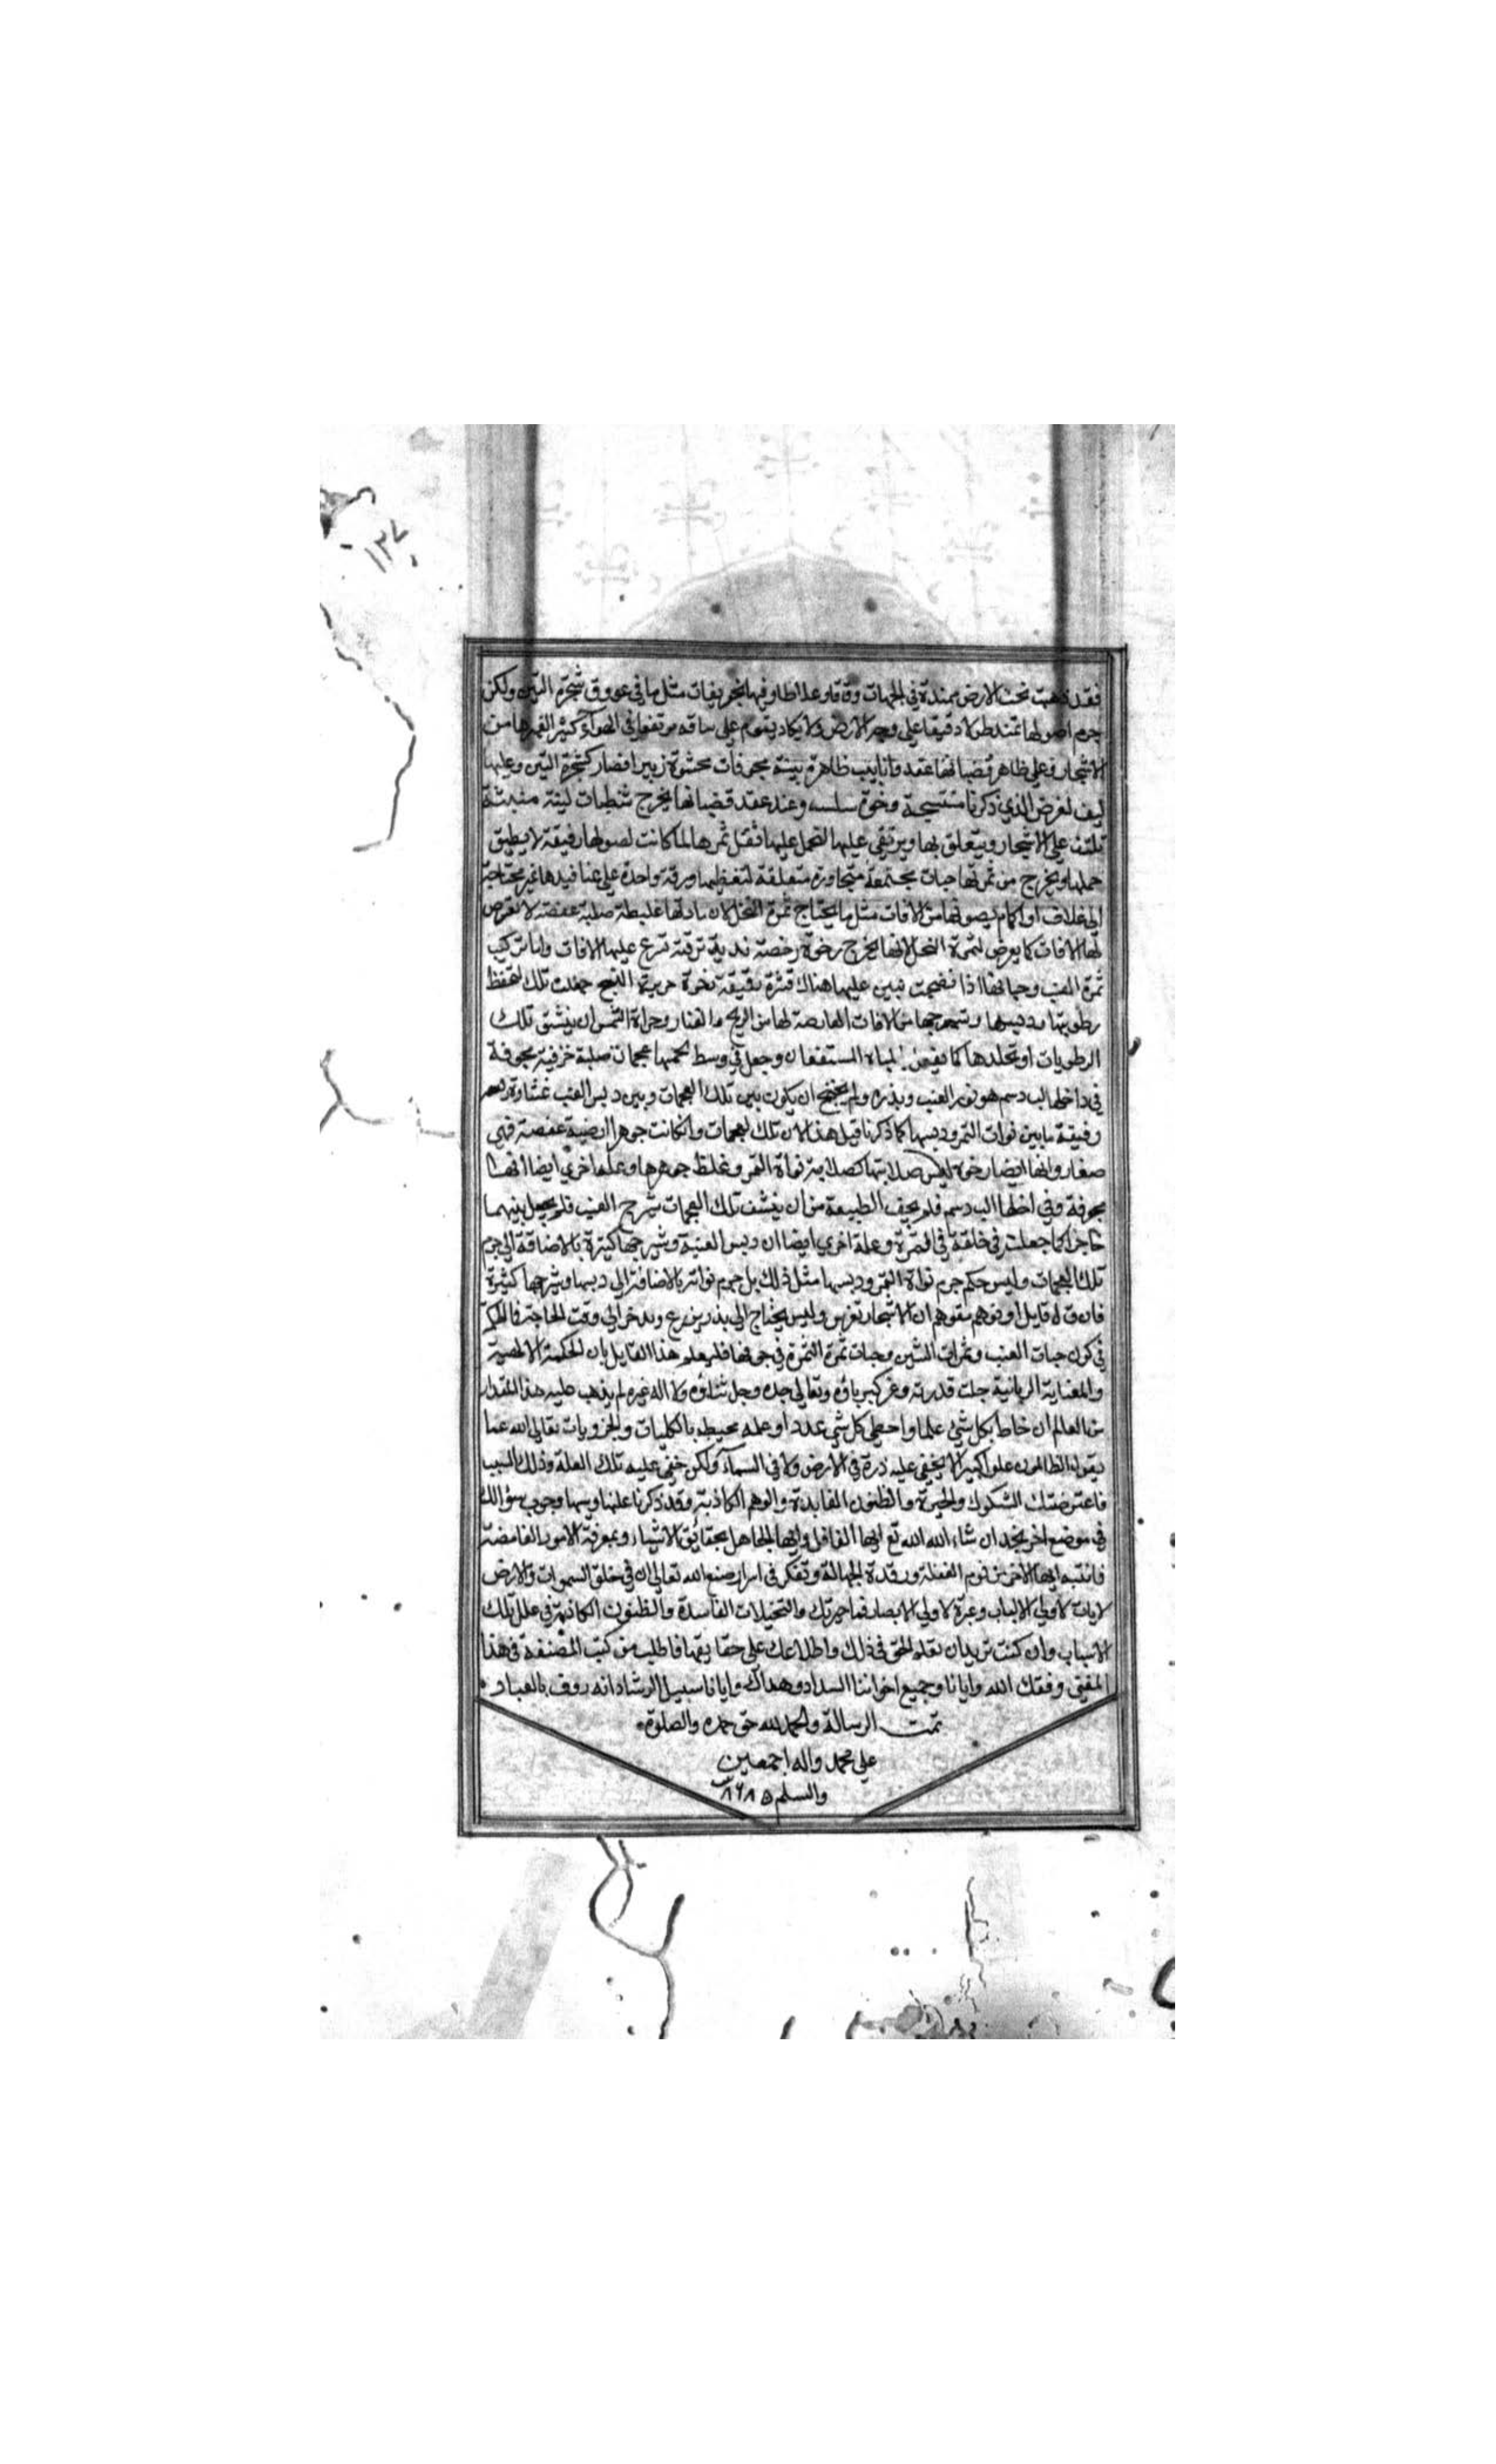 ١٣٧
فقد ذهبت تحت الارض ممتدة في الجهات دقاقا وغلاظا وفيها تجويفات مثل ما في عروق شجرة التين ولكن
جرم اصولها تمتد طولا دقيقا على وجه الارض ولا يكاد يقوم على ساقه مرتفعا في الهوآء كثير الغيرها من
الاشجار وعلى ظاهر قضبانها عقد وانابيب ظاهرة بينة مجوفات محشوة زبير افضار كشجرة التين وعليها
ليف لغرض الذي ذكرنا منتسجة رخوة سلسه وعند عقد قضبانها يخرج شظيات لينة منبثة
تلتف على الاشجار ويتعلق بها ويرتقي عليها لتحمل عليها ثقل ثمرها لما كانت اصولها رقيقة لا يطيق
حملها ويخرج من ثمرتها حبات مجتمعة متجاورة متعلقة لتغطيها ورقة واحدة على عناقيدها غير محتاجة
الى غلاف او اكمام يصونها من الافات مثل ما يحتاج ثمرة النخل لان مادتها غليظة صلبة عفصة لا تعرض
لها الافات كما يعرض لثمرة النخل لانها يخرج رخوة رخصة ندية ترفة تسرع عليها الافات واما تركيب
ثمرة العنب وحباتها اذا نضجت تبين عليها هناك قشرة رقيقة نخوة حريرية النسج جعلت تلك لتحفظ
رطوبتها ودبسها وشيرجها من الافات العارضة لها من الريح والغبار وحرارة الشمس ان ينشق تلك
الرطوبات او تحلدها كما يعرض لمياه المستنقعات وجعل في وسط لحمها عجمات صلبة خزفية مجوفة
في داخلها لب دسم هو نور العنب وبذره ولم يحتج ان يكون بين تلك العجمات وبين دبس العنب غشاوة
رقيقة ما بين نوات التمر ودبسها كما ذكرنا قبل هذا لان تلك العجمات وان كانت جوهرا ارضية عفصة فهي
صغار وانها ايضا رخوة ليس صلابتها كصلابة نواة التمر وغلظ جوهرها وعلة اخرى ايضا انها
مجوفة وفي داخلها لب دسم فلم يخف الطبيعة من ان ينشف تلك العجمات شيرج العنب فلم يجعل بينهما
حاجزا كما جعلت في خلقة في التمرة وعلة اخرى ايضا ان دبس العنبة وشيرجها كثيرة بالاضافة الى جرم
تلك العجمات وليس حكم جرم نواة التمر ودبسها مثل ذلك بل جرم نواتر بالاضافة الى دبسها وشيرجها كثيرة
فان قال قايل او توهم متوهم ان الاشجار تغرس وليس يحتاج الى بذر يزرع ويدخر الى وقت الحاجة فالحكمة
في كون حبات العنب وثمرات التين وحبات ثمرة التمرة في جوفها فليعلم هذا القايل بان الحكمة الالهية
والعناية الربانية جلت قدرته وعز كبرياؤه وتعالى جده وجل ثناؤه ولا اله غيره لم يذهب عليه هذا المقدار
من العالم ان حاط بكل شيء علما واحصى كل شيء عددا وعلمه محيطه بالكليات والجزويات تعالى الله عما
يقول الظالمون علوا كبيرا لا يخفى عليه ذرة في الارض ولا في السمآء ولكن خفي عليه تلك العلة وذلك السبب
فاعترضتك الشكوك والحيرة والظنون الفاسدة والوهم الكاذبة وقد ذكرنا علتها وسببها وجوب سؤالك
في موضع اخر بجد ان شاء الله الله تع ايها الغافل وايها الجاهل بحقائق الاشياء وبمعرفة الامور الغامضة
فانتبه ايها الاخ من نوم الغفلة ورقدة الجهالة وتفكر في اسرار صنع الله تعالى ان في خلق السموات والارض
لايات لاولي الالباب وعبرة لاولي الابصار فما حيرتك والتخيلات الفاسدة والظنون الكاذبة في علل تلك
الاسباب وان كنت تريد ان تعلم الحق في ذلك واطلاعك على حقايقها فاطلب من كتب المصنفة في هذا
المفتى وفقك الله وايانا وجميع اخواننا السداد وهداك وايانا سبيل الرشاد انه رووف بالعباد
تمت الرسالة والحمد لله حق حمده والصلوة
على محمد واله اجمعين
والسلم